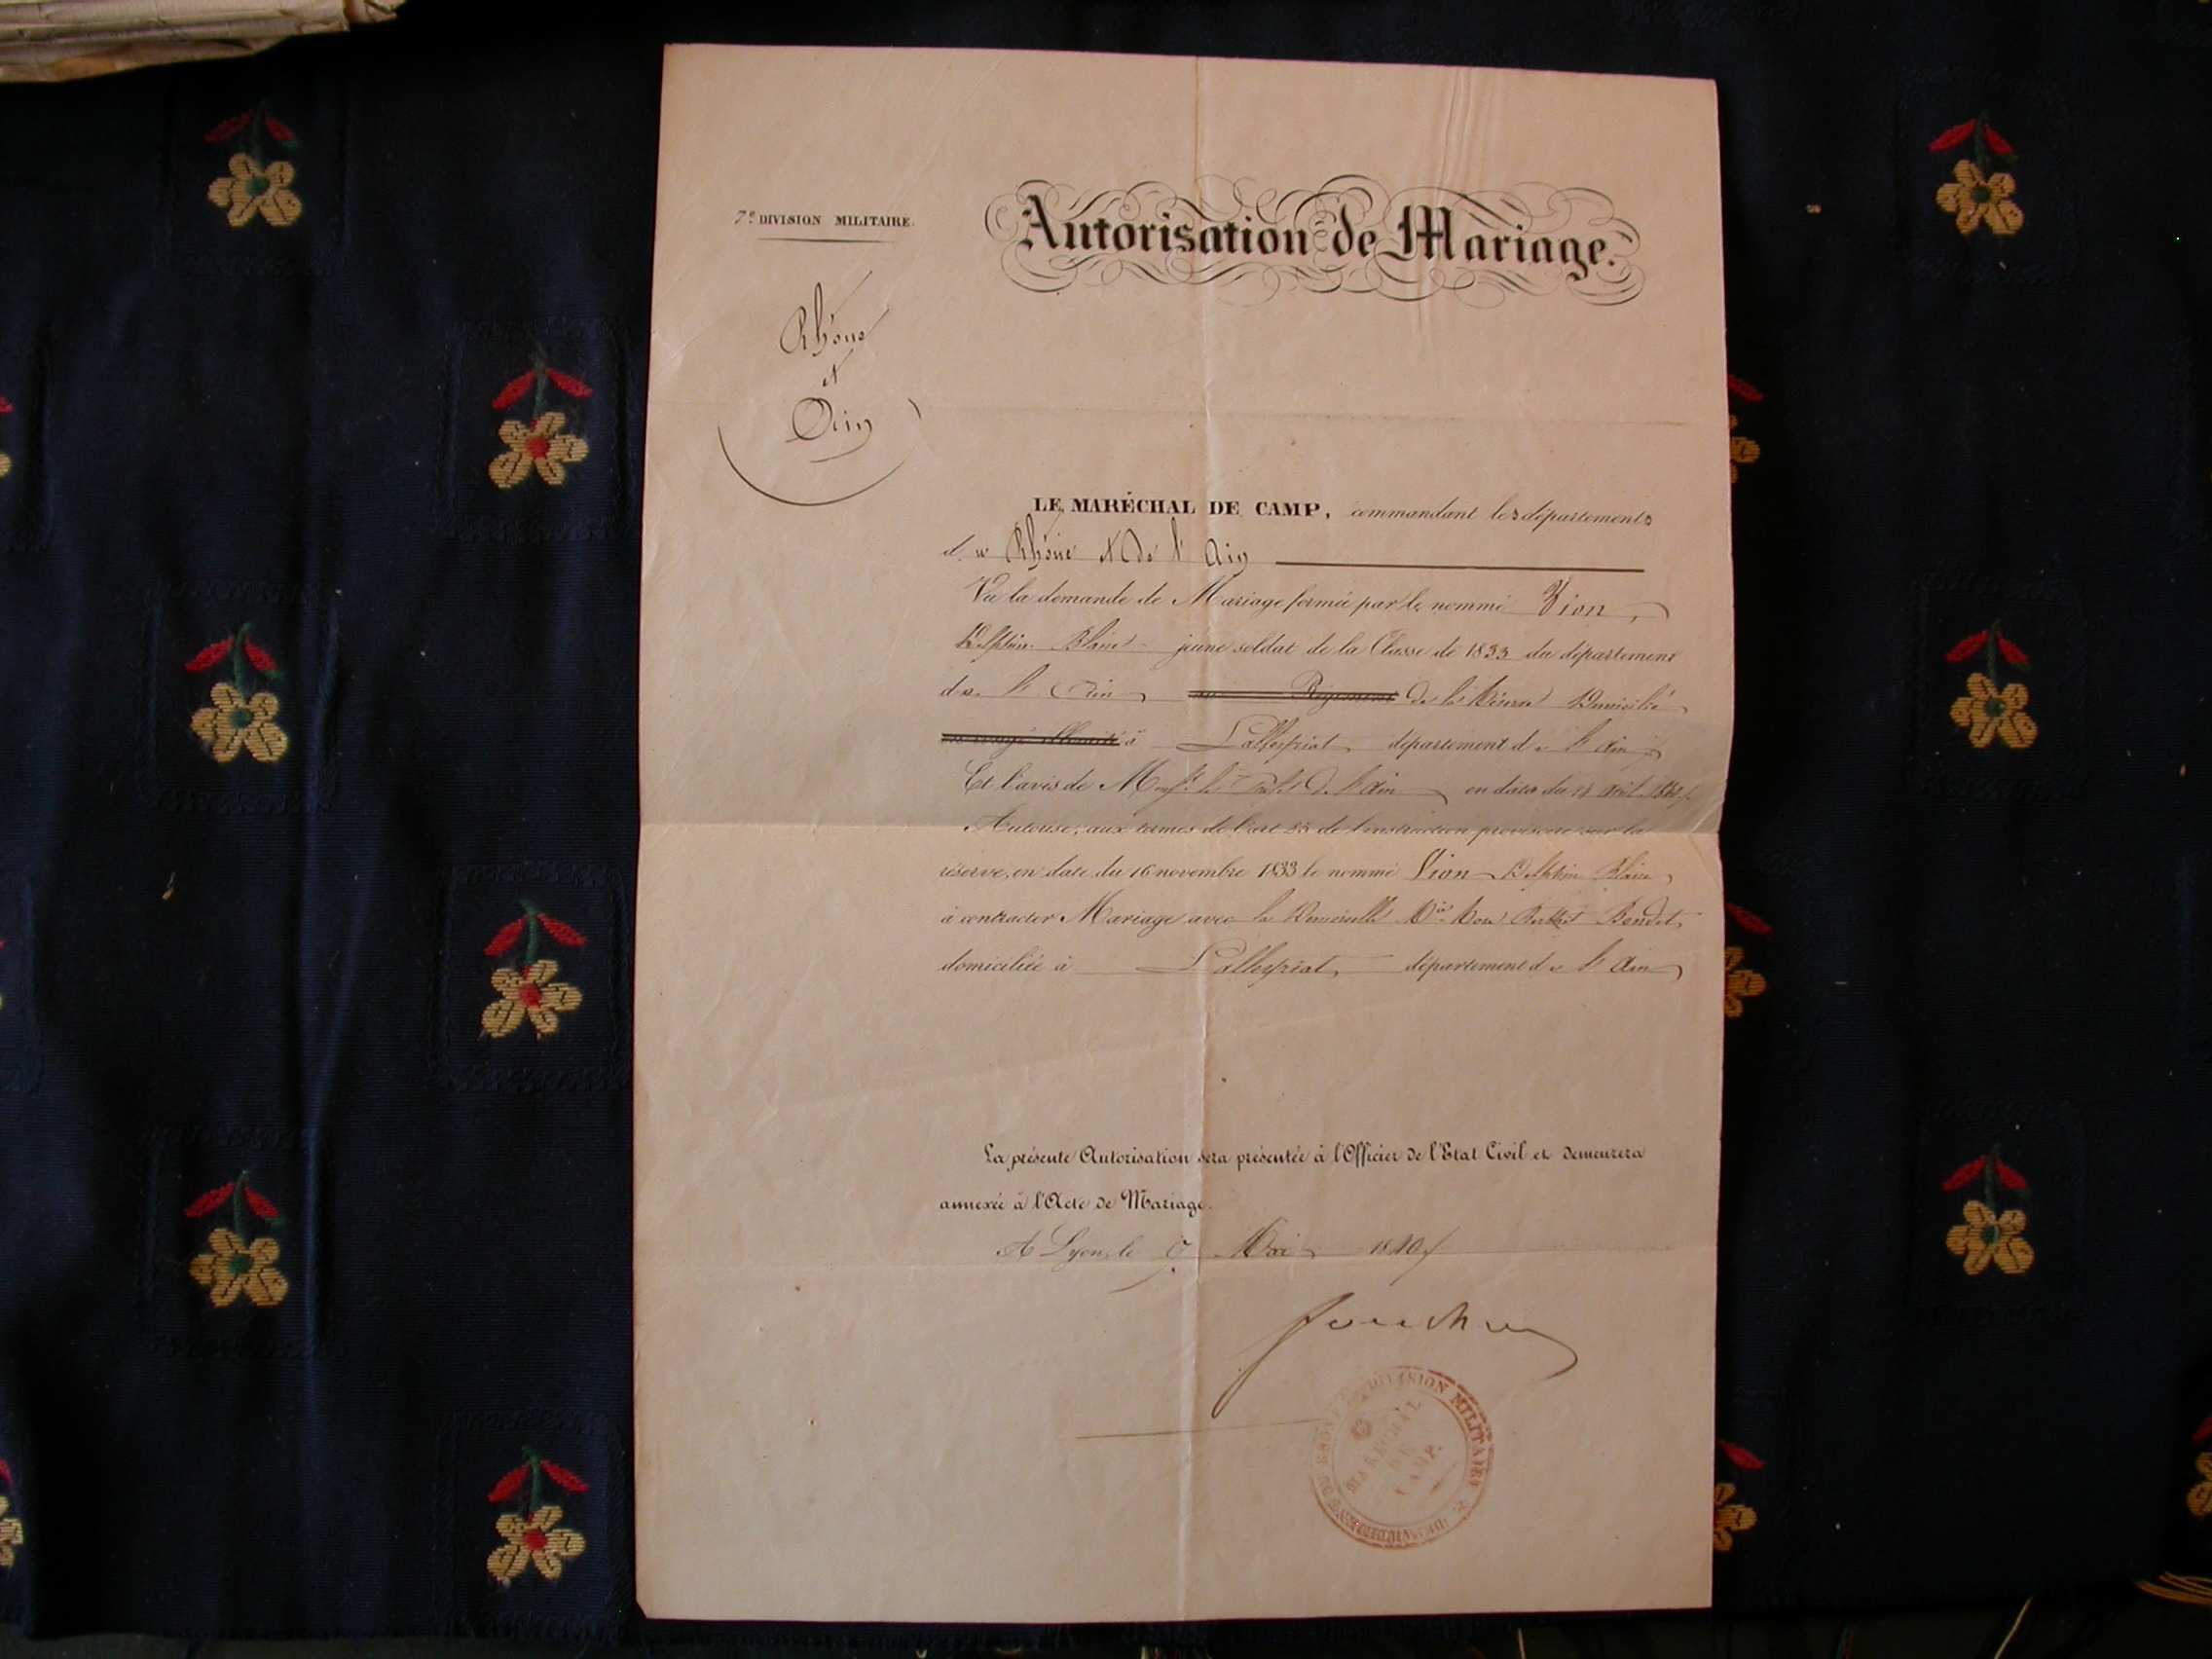 7.e DIVISION MILITAIRE.
Autorisation de Mariage.
Rhône
et
Ain
LE MARÉCHAL DE CAMP, commandant les départements
du Rhône et de l'Ain
Vu la demande de Mariage formée par le nommé Vion,
Delphin jeune soldat de la Classe de 1833 du département
de l'Ain Régiment de la Réserve Domicilié
à département de l'Ain
Et l'avis de M le Préfet de l'Ain en date du avril 1840
Autorise, aux termes de l'art 25 de l'instruction provisoire sur la
réserve, en date du 16 novembre 1833 le nommé Vion Delphin
à contracter Mariage avec la Demoiselle
domiciliée à département de l'Ain
La présente Autorisation sera présentée à l'Officier de l'Etat Civil et demeurera
annexée à l'Acte de Mariage.
A Lyon, le Mai 1840
DIVISION MILITAIRE
MARECHAL
DE
CAMP.